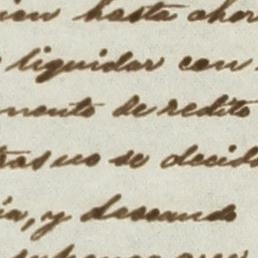 ion hasta ahor
liquidar con
mento de redito
tras no se decid
ia, y deseando